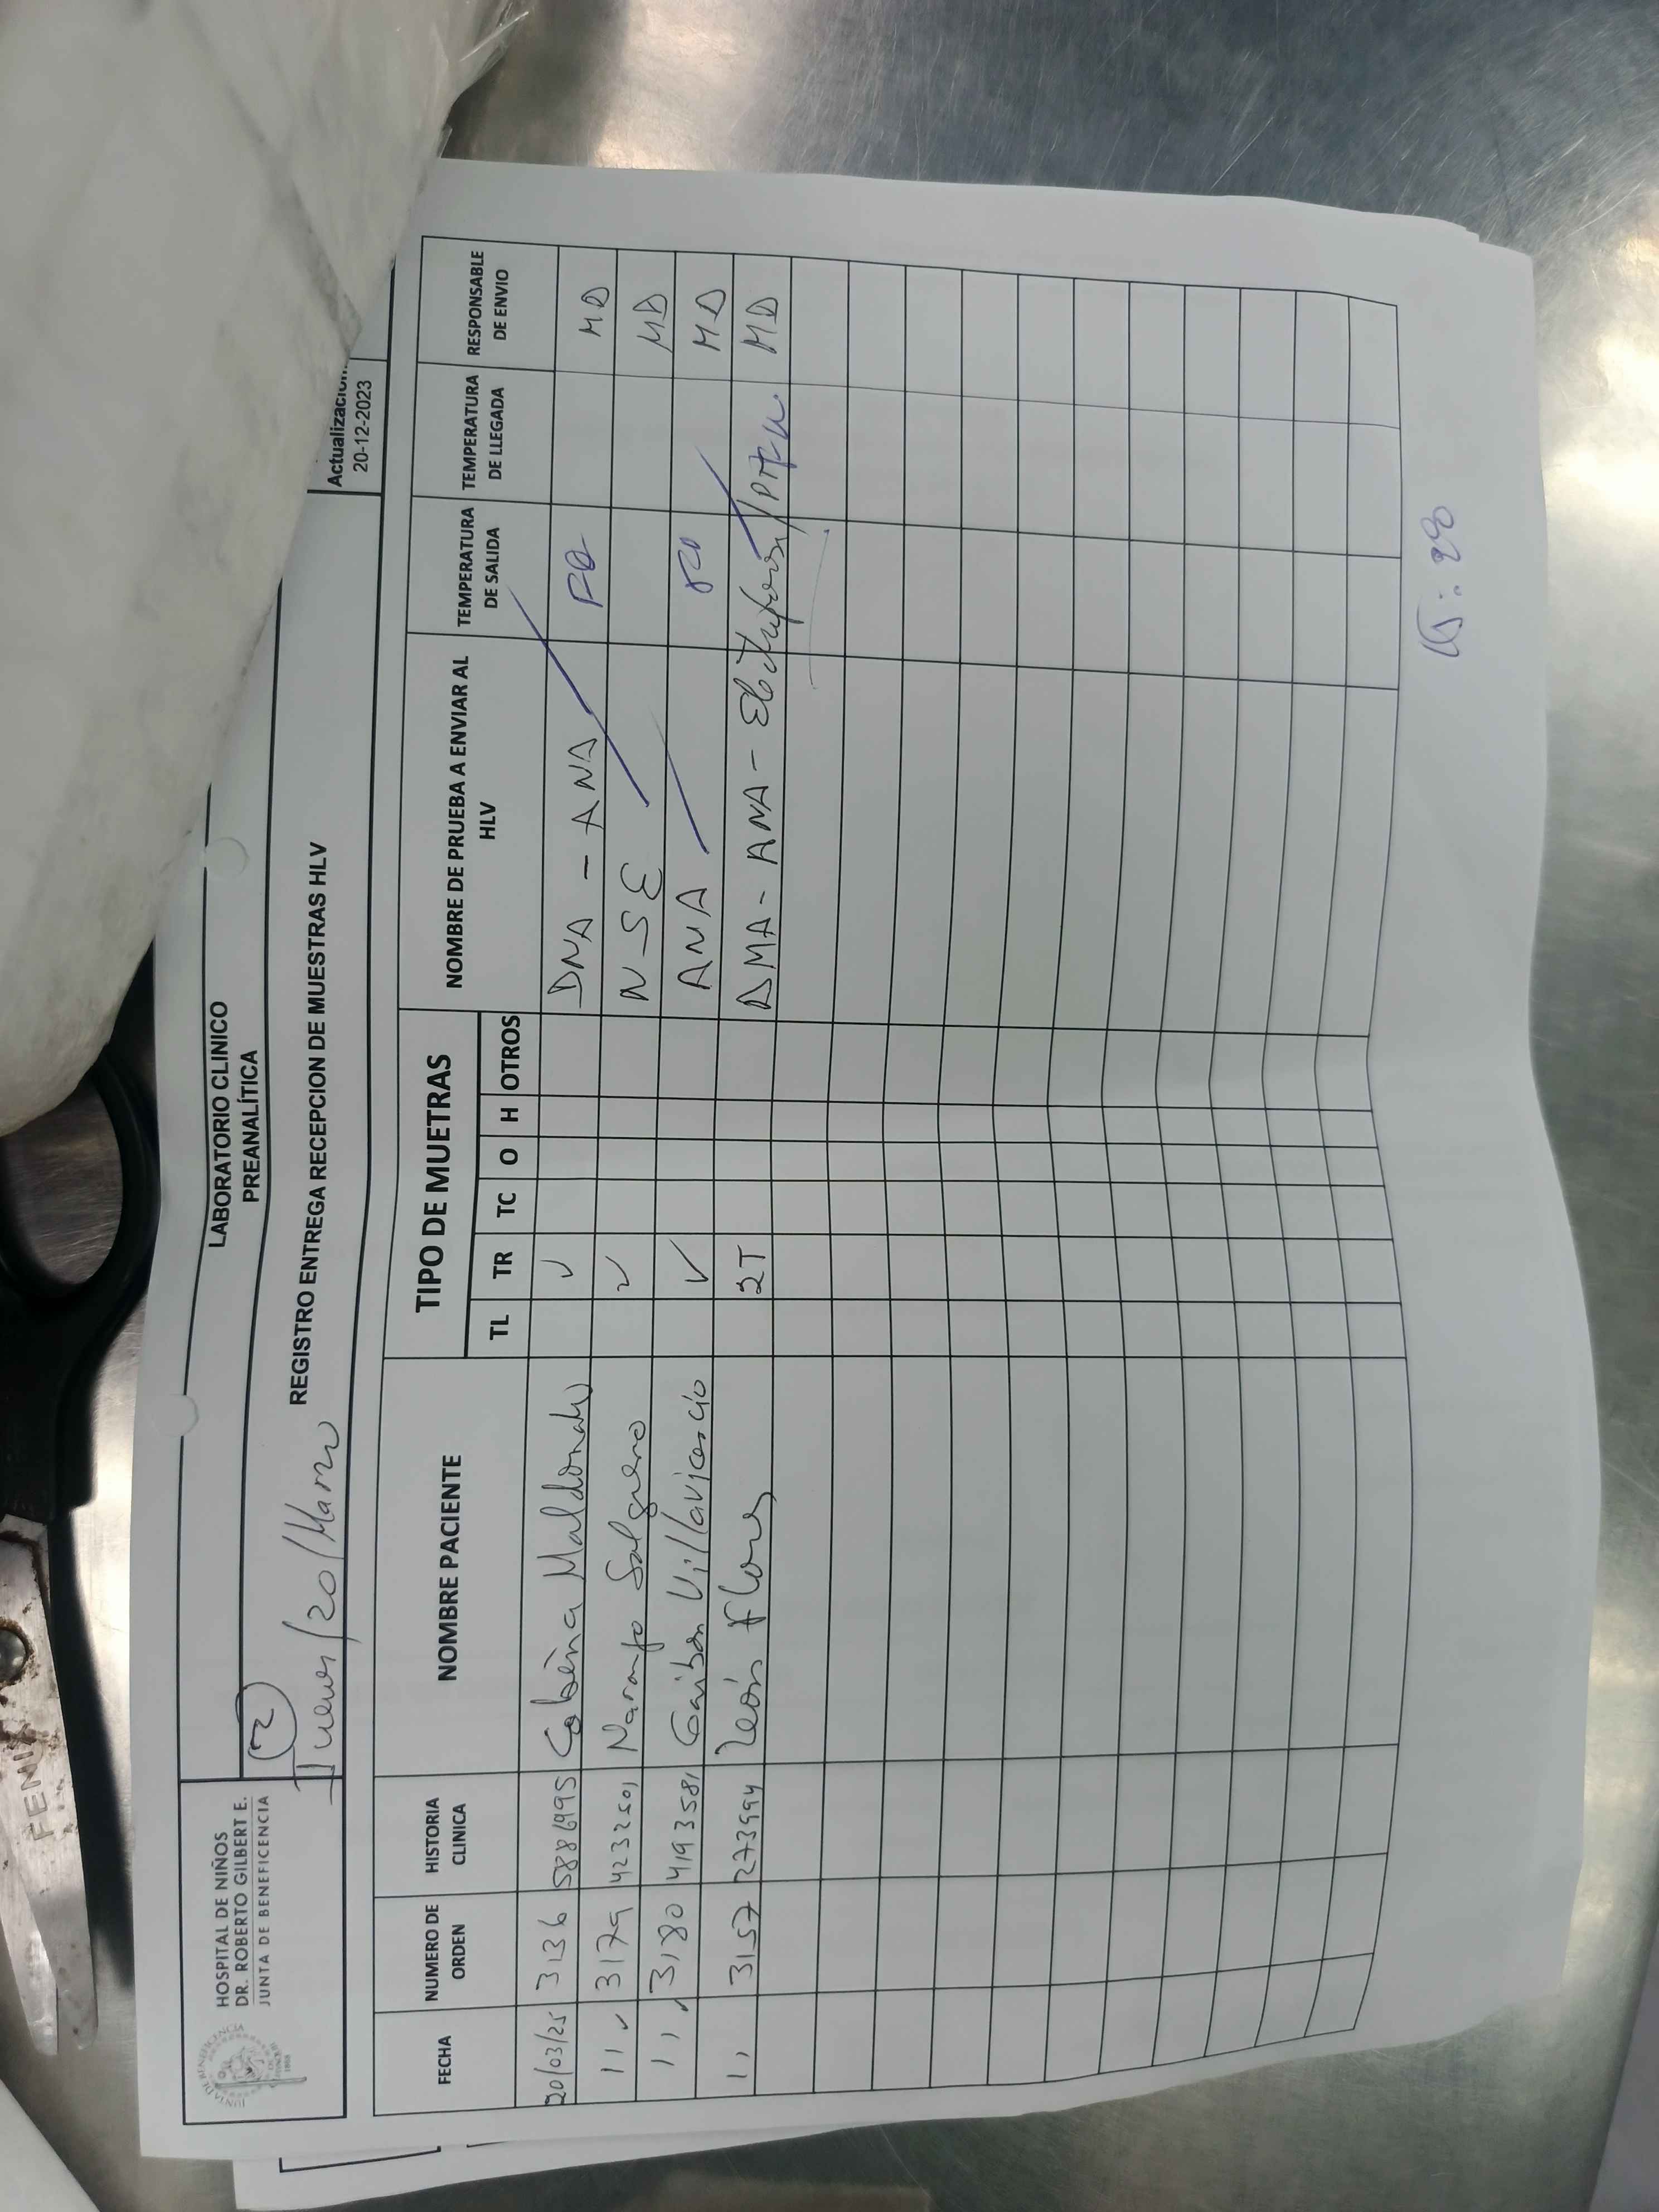 HOSPITAL DE NIÑOS
DR. ROBERTO GILBERT E.
JUNTA DE BENEFICENCIA
LABORATORIO CLINICO
PREANALÍTICA
2
Jueves/20/Marzo
REGISTRO ENTREGA RECEPCION DE MUESTRAS HLV
20-12-2023
FECHA NUMERO DE ORDEN HISTORIA CLINICA NOMBRE PACIENTE TIPO DE MUETRAS NOMBRE DE PRUEBA A ENVIAR AL HLV TEMPERATURA DE SALIDA TEMPERATURA DE LLEGADA RESPONSABLE DE ENVIO
TL TR TC O H OTROS
20/03/25 3136 Cobeña Maldonado ✓ DNA - ANA MD
11 ✓ 3179 4232501 Naranjo Salguero ✓ N-SE MD
11 ✓ 3180 4193581 Gaibor Villavicencio ✓ ANA MD
11 3157 273994 León Flores 2T DMA - ANA - MD
FENI